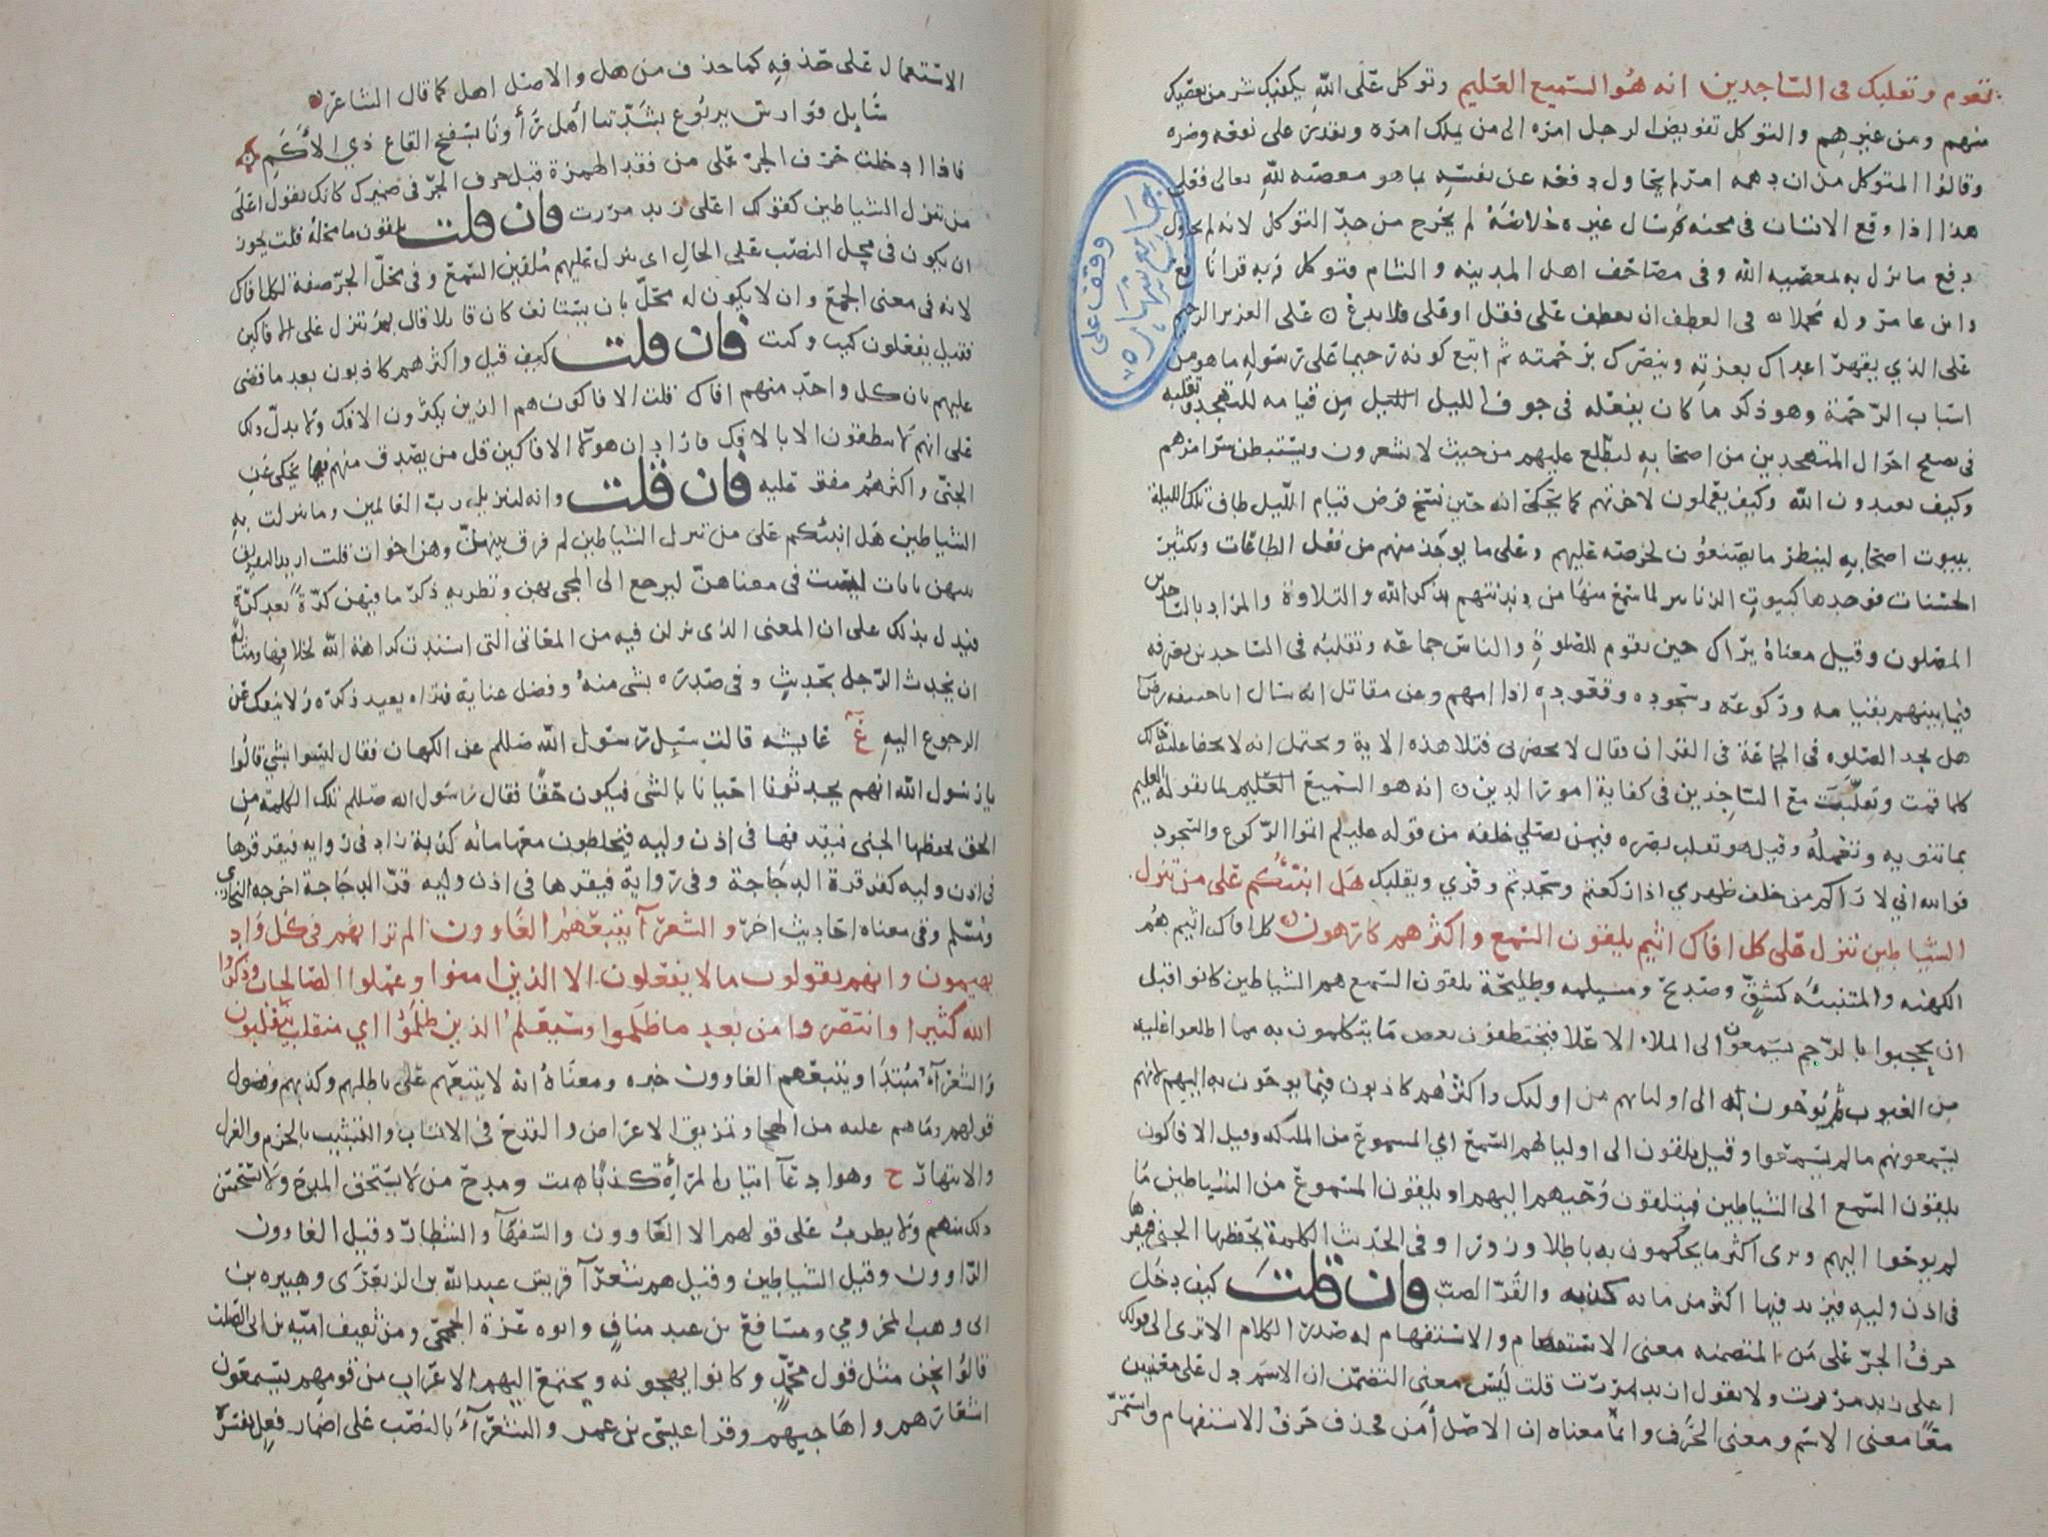 تقوم وتقلبك في الساجدين انه هو السميع العليم وتوكل على الله يكفيك شر من يعصيك
منهم ومن غيرهم والتوكل تفويض الرجل امره الى من يملك امره ويقدر على نفعه وضره
وقالوا المتوكل من ان دهمه امر لم يحاول دفعه عن نفسه بما هو معصية لله تعالى فعلى
هذا اذا وقع الانسان في محنة ثم سال غيره خلاصه لم يخرج من حد التوكل لانه لم يحاول
دفع ما نزل به بمعصية الله وفي مصاحف اهل المدينة والشام فتوكل وبه قرا نافع
وابن عامر وله محملان في العطف ان يعطف على فقل او فلا تدع على العزيز الرحيم
على الذي يقهر اعداك بعزته وينصرك برحمته ثم اتبع كونه رحيما على رسوله ما هو من
اسباب الرحمة وهو ذكر ما كان يفعله في جوف الليل من قيامه للتهجد وتقلبه
في تصفح احوال المتهجدين من اصحابه ليطلع عليهم من حيث لا يشعرون ويستبطن سر امرهم
وكيف يعبدون الله وكيف يعملون لاخرتهم كما يحكى انه حين نسخ فرض قيام الليل طاف تلك الليلة
ببيوت اصحابه لينظر ما يصنعون لحرصه عليهم وعلى ما يوجد منهم من فعل الطاعات وتكثير
الحسنات فوجدها كبيوت الزنابير لما سمع منها من دندنتهم بذكر الله والتلاوة والمراد بالساجدين
المصلون وقيل معناه يراك حين تقوم للصلوة والناس جماعة وتقلبه في الساجدين تصرفه
فيما بينهم بقيامه وركوعه وسجوده وقعوده اذا امهم وعن مقاتل انه سال ابا حنيفة
هل تجد الصلوة في الجماعة في القران فقال لا يحضرني فتلا هذه الاية ويحتمل انه لا يخفى عليه حالك
كلما قمت وتقلبت مع الساجدين في كفاية امور الدين انه هو السميع لما تقوله العليم
بما تنويه وتعمله وقيل هو تقلب بصره فيمن يصلي خلفه من قوله عليلم اتموا الركوع والسجود
فوالله اني لاراكم من خلف ظهري اذا ركعتم وسجدتم وقرى ويقلبك هل انبئكم على من تنزل
الشياطين تنزل على كل افاك اثيم يلقون السمع واكثرهم كاذبون كل افاك اثيم هم
الكهنة والمتنبئة كشق وسطيح ومسيلمة وطليحة يلقون السمع هم الشياطين كانوا قبل
ان يحجبوا بالرجم يسمعون الى الملا الاعلا فيختطفون بعض ما يتكلمون به مما اطلعوا عليه
من الغيوب ثم يوحون به الى اوليائهم من اوليك واكثرهم كاذبون فيما يوحون به اليهم لانهم
يسمعونهم ما لم يسمعوا وقيل يلقون الى اوليائهم السمع اي المسموع من الملئكة وقيل الافاكون
يلقون السمع الى الشياطين فيتلقون وحيهم اليهم او يلقون المسموع من الشياطين ما
لم يوحوا اليهم وترى اكثر ما يحكمون به باطلا وزورا وفي الحديث الكلمة يخطفها الجني فيقرها
في اذن وليه فيزيد فيها اكثر من مائة كذبة والقر الصب فان قلت كيف دخل
حرف الجر على من المتضمنة معنى الاستفهام والاستفهام له صدر الكلام الا ترى الى قولك
اعلى زيد مررت ولا تقول ان بد مررت قلت ليس معنى التضمن ان الاسم دل على معنيين
معا معنى الاسم ومعنى الحرف وانما معناه ان الاصل أمن فحذف حرف الاستفهام واستمر
الاستعمال على حذفه كما حذف من هل والاصل اهل كما قال الشاعر
سايل فوارس يربوع بشدتنا أهل رأونا بسفح القاع ذي الأكم
فاذا ادخلت حرف الجر على من فقدر الهمزة قبل حرف الجر في ضميرك كانك تقول اعلى
من تنزل الشياطين كقولك اعلى زيد مررت فان قلت يلقون ما محله قلت يجوز
ان يكون في محل النصب على الحال اي تنزل عليهم ملقين السمع وفي محل الجر صفة لكل افاك
لانه في معنى الجمع وان لا يكون له محل بان يستانف كان قايلا قال لم تتنزل على الافاكين
فقيل يفعلون كيت وكيت فان قلت كيف قيل واكثرهم كاذبون بعد ما قضى
عليهم بان كل واحد منهم افاك قلت الافاكون هم الذين يكثرون الافك ولا يدل ذلك
على انهم لا ينطقون الا بالافك فاراد ان هولا الافاكين قل من يصدق منهم فيما يحكى عن
الجني واكثرهم مفتر عليه فان قلت وانه لتنزيل رب العالمين وما تنزلت به
الشياطين هل انبئكم على من تنزل الشياطين لم فرق بينهن وهن اخوات قلت اريد التفريق
بينهن بايات ليست في معناهن ليرجع الى المجي بهن وتطرية ذكر ما فيهن كرة بعد كرة
فيدل بذلك على ان المعنى الذي نزلن فيه من المعاني التي اشتدت كراهة الله لخلافها ومثاله
ان يحدث الرجل بحديث وفي صدره بشي منه وفضل عناية فتراه يعيد ذكره ولا ينفك عن
الرجوع اليه غ عايشة قالت سيل رسول الله صللم عن الكهان فقال ليسوا بشي قالوا
يا رسول الله انهم يحدثونا احيانا بالشي فيكون حقا فقال رسول الله صللم تلك الكلمة من
الحق يحفظها الجني فيقذفها في اذن وليه فيخلطون معها مائة كذبة زاد في رواية فيقرقرها
في اذن وليه كقرقرة الدجاجة وفي رواية فيقرها في اذن وليه قر الدجاجة اخرجه البخاري
ومسلم وفي معناه احاديث اخر والشعرآ يتبعهم الغاوون الم تر انهم في كل واد
يهيمون وانهم يقولون ما لا يفعلون الا الذين امنوا وعملوا الصالحات وذكروا
الله كثيرا وانتصروا من بعد ما ظلموا وسيعلم الذين ظلموا اي منقلب ينقلبون
والشعرآ مبتدا ويتبعهم الغاوون خبره ومعناه انه لا يتبعهم على باطلهم وكذبهم وفضول
قولهم وما هم عليه من الهجا وتمزيق الاعراض والقدح في الانساب والتشبيب بالحرم والغزل
والابتهار ح وهو ادعآ اتيان المرأة كذبا ومدح من لا يستحق المدح ولا يستحسن
ذلك منهم ولا يطرب على قولهم الا الغاوون والسفهآ والشطار وقيل الغاوون
الراوون وقيل الشياطين وقيل هم شعرآ قريش عبد الله بن الزبعرى وهبيرة بن
ابي وهب المخزومي ومسافع بن عبد مناف وابو عزة الجمحي ومن ثقيف امية بن ابي الصلت
قالوا نحن مثل قول محمد وكانوا يهجونه ويجتمع اليهم الاعراب من قومهم يستمعون
اشعارهم واهاجيهم وقرا عيسى بن عمر والشعرآء بالنصب على اضمار فعل يفسره
وقف على